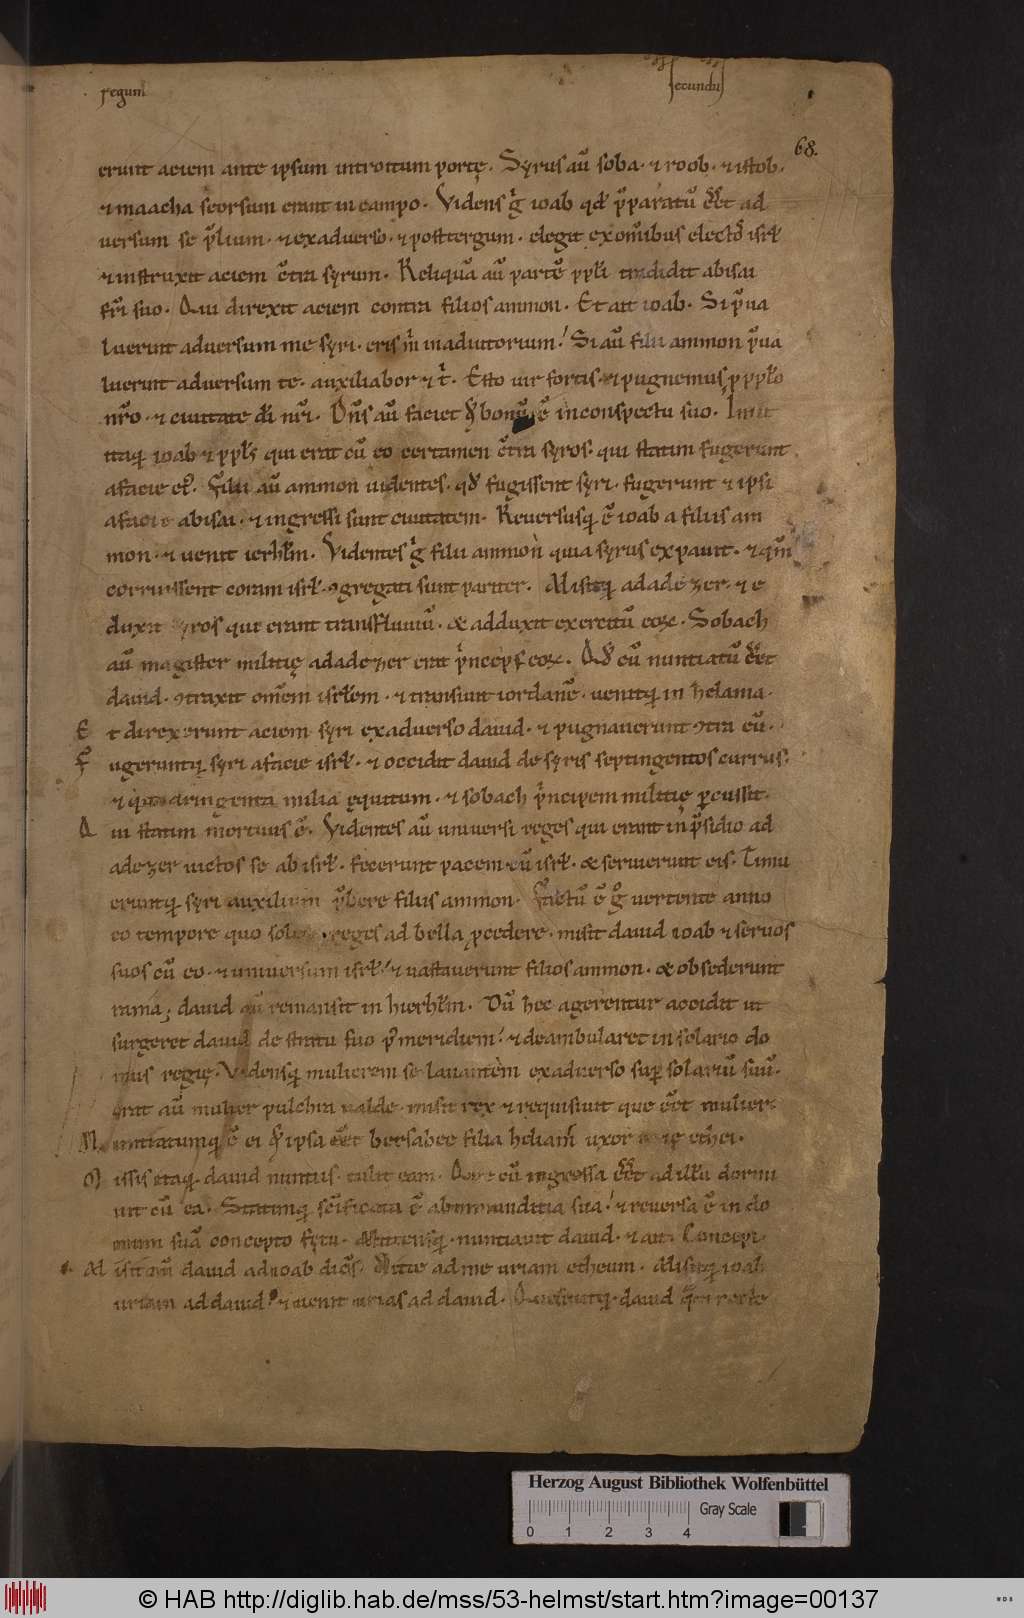 regum
secundus
68.
erunt aciem ante ipsum introitum portę. Syrus aū soba. ⁊ roob. ⁊ istob.
⁊ maacha seorsum erant in campo. Videns gͥ ioab qd̄ p̄paratū eēt ad
versum se p̄lium. ⁊ exadverso. ⁊ posttergum. elegit ex om̄ibus electoͬ isrł
⁊ instruxit aciem cͦtra syrum. Reliquā aū partē ppłi tradidit abisai
fr̄i suo. Qui direxit aciem contra filios ammon. Et ait ioab. Si p̄ua
luerint adversum me syri. eris m̄ in adiutorium! Si aū filii ammon p̄ua
luerint adversum te. auxiliabor ⁊ t̄. Esto uir fortis. ⁊ pugnemus p ppło
nr̄o. ⁊ ciuitate dī nr̄i. Dn̄s aū faciet qͩ bonū ē in conspectu suo. Iniit
itaq; ioab ⁊ ppłs qui erat cū eo certamen cͦtra syros. qui statim fugerunt
a facie ei᷒. Filii aū ammon uidentes. qd̄ fugissent syri. fugerunt ⁊ ipsi
a facie abisai. ⁊ ingressi sunt ciuitatem. Reversusq; ē ioab a filiis am
mon. ⁊ uenit ierhłm. Videntes gͥ filii ammon quia syrus expauit. ⁊ qm̄
corruissent coram isrł. ꝯgregati sunt pariter. Misitq; adadezer. ⁊ e
duxit syros qui erant transfluuiū. & adduxit exercitū eoꝝ. Sobach
aū magister militię adadezer erat p̄nceps eoꝝ. Qd̄ cū nuntiatū eēt
dauid. ꝯtraxit om̄em isrłem. ⁊ transiuit iordanē. uenitq; in helama.
E t direxerunt aciem syri exadverso dauid. ⁊ pugnauerunt ꝯtra eū.
F ugeruntq; syri a facie isrł. ⁊ occidit dauid de syris septingentos currus.
⁊ quadringenta milia ęquitum. ⁊ sobach p̄ncipem militię ꝑcussit.
Q ui statim mortuus ē. Videntes aū universi reges qui erant in p̄sidio ad
adezer uictos se ab isrł. fecerunt pacem cū isrł. & seruierunt eis. Timu
eruntq; syri auxilium p̄bere filiis ammon. Factū ē gͦ vertente anno
eo tempore quo solent reges ad bella ꝓcedere. misit dauid ioab ⁊ servos
suos cū eo. ⁊ universum isrł! ⁊ uastauerunt filios ammon. & obsederunt
rama; dauid aū remansit in hierhłm. Dū hec agerentur accidit ut
surgeret dauid de stratu suo p᷒ meridiem! ⁊ deambularet in solario do
mus regię. Vidensq; mulierem se lauantem exadverso sup solariū suū.
erat aū mulier pulchra ualde. misit rex ⁊ requisiuit que eēt mulier.
N untiatumq; ē ei qͩ ipsa eēt bersabee filia heliam uxor urie ethei.
M issis itaq. dauid nuntiis. tulit eam. Que cū ingressa eēt ad illū dormi
uit cū ea. Statimq; sc̄ificata ē ab inmunditia sua! ⁊ reversa ē in do
mum suā concepto fętu. Mittensq; nuntiauit dauid. ⁊ ait. Concepi.
M isit aū dauid ad ioab dicēs. Mitte ad me uriam etheum. Misitq; ioab
uriam ad dauid. ⁊ uenit urias ad dauid. Quesiuitq; dauid qͣm recte
Herzog August Bibliothek Wolfenbüttel
Gray Scale
0 1 2 3 4
© HAB http://diglib.hab.de/mss/53-helmst/start.htm?image=00137